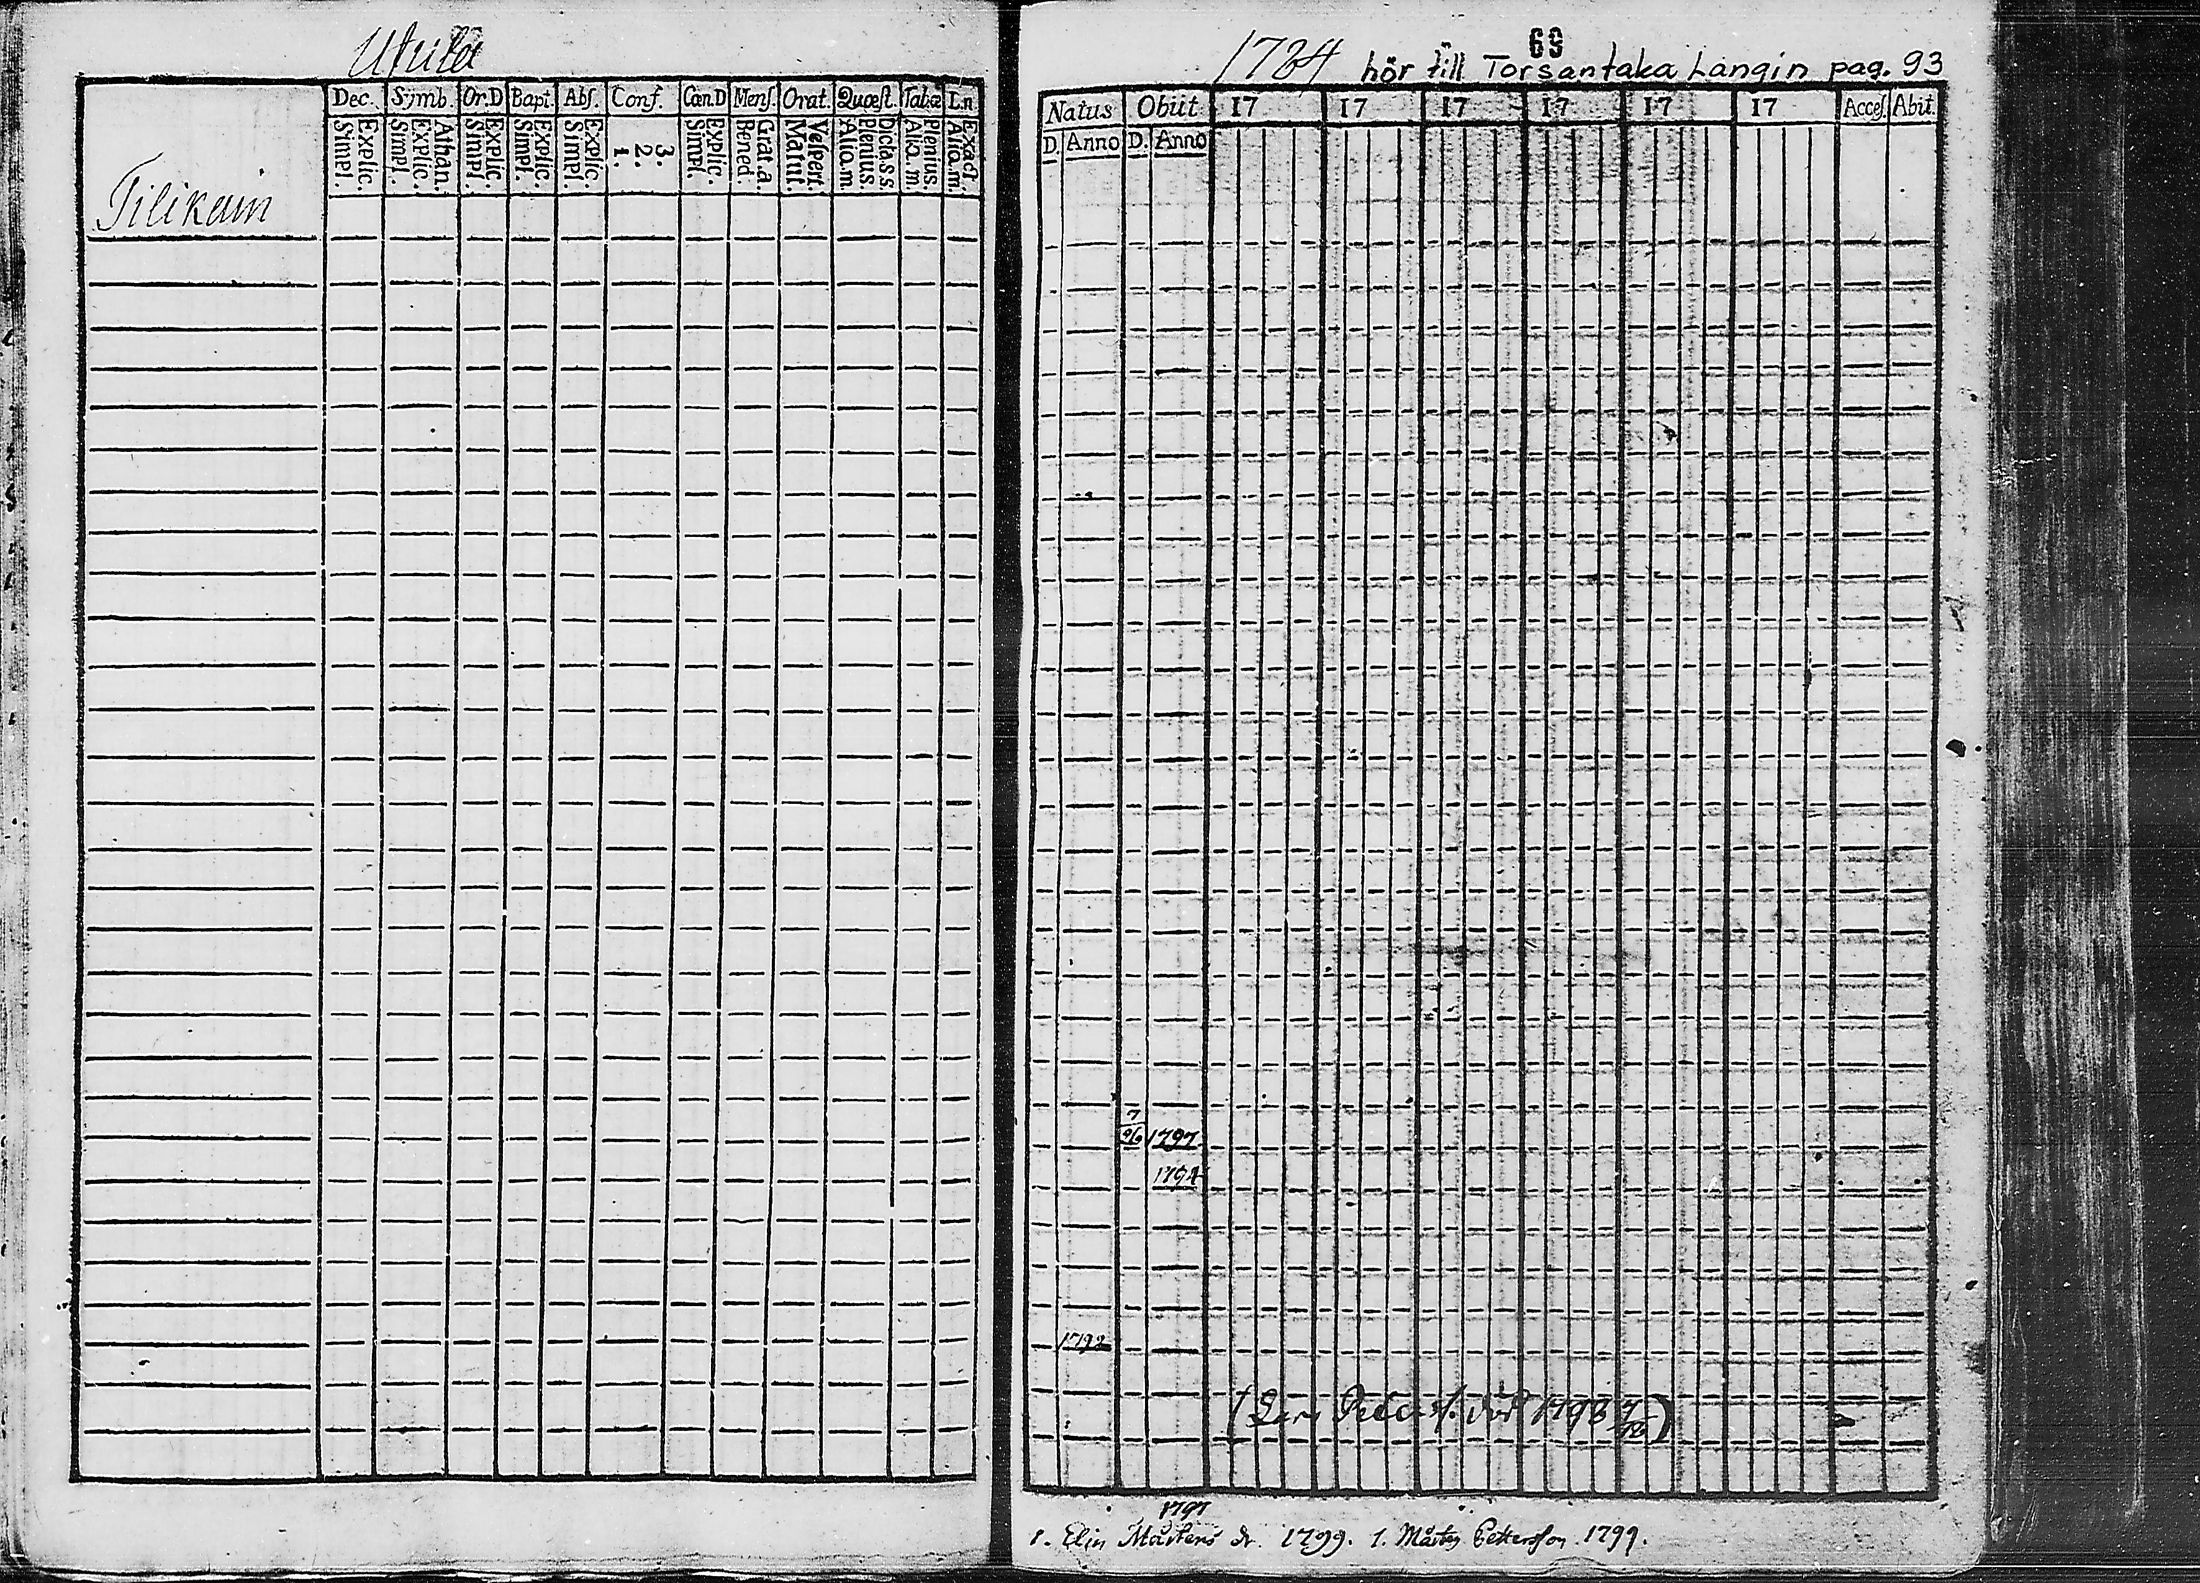 Utula
Dec. Symb. Or.D Bapt. Abſ. Conf. Cœn.D Menſ Orat. Quœſt. Tabœ Ln
Explic. Simpl. Athan. Explic. Simpl. Explic. Simpl. Explic. Simpl. Explic. Simpl. 3. 2. 1. Explic. Simpl. Grat.a. Bened. Veſpert. Matut. Dicta.s.s. Plenius. Alio.m. Plenius. Alia.m. Exact. Alia.m.
Tilikain
69
1784 hör till Torsantaka Längin pag. 93
Natus Obiit 17 17 17 17 17 17 Acceſ. Abit.
D. Anno D. Anno
7
1797
1792
(Lars död 1798 )
1797
1. Elin Mårtens dr. 1799. 1. Mårten Pettersson. 1799.